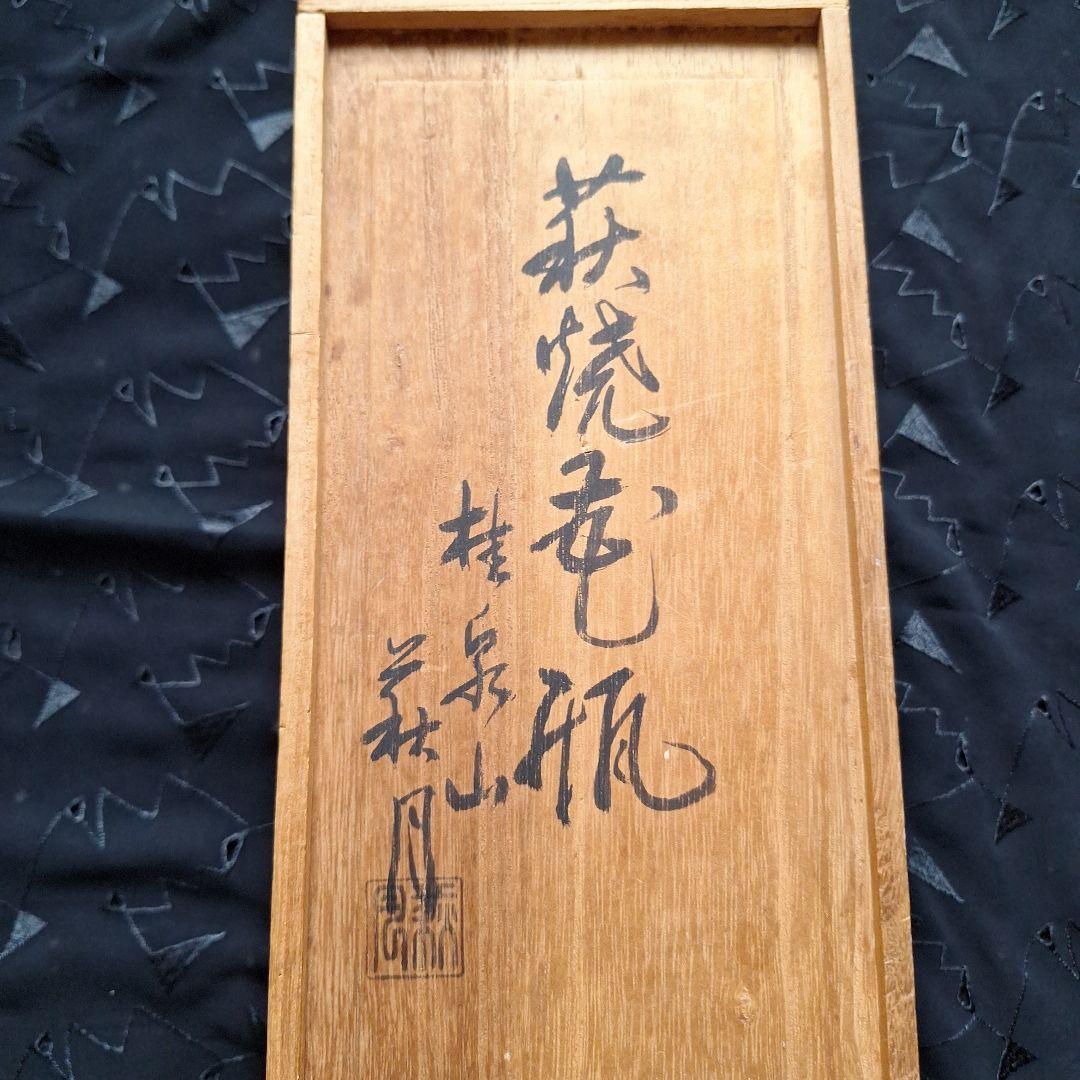 萩焼花瓶
桂泉山
萩月